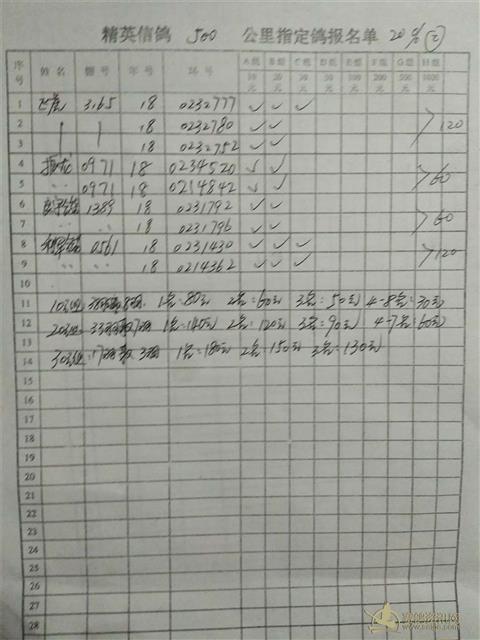 精英信鸽 500 公里指定鸽报名单
序号 姓名 棚号 年号 环号 A组 B组 C组 D组 E组 F组 G组 H组
10元 20元 30元 50元 100元 200元 500元 1000元
1 3165 18 0232777 ✓ ✓ ✓
2 18 0232780 ✓ ✓ 120
3 18 0232752 ✓ ✓
4 0971 18 0234520 ✓ ✓
5 0971 18 0214842 ✓ ✓ 60
6 1389 18 0231792 ✓ ✓
7 18 0231796 ✓ ✓ 60
8 0561 18 0231430 ✓ ✓ ✓
9 18 0214362 ✓ ✓ ✓ 120
10
11 10元组 1名:80元 2名:60元 3名:50元 4-8名:30元
12 20元组 1名:140元 2名:120元 3名:90元 4-7名:60元
13
14 30元组 1名:180元 2名:150元 3名:130元
15
16
17
18
19
20
21
22
23
24
25
26
27
28